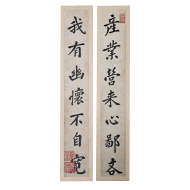 產業營来心鄙吝
我有幽懷不自寛